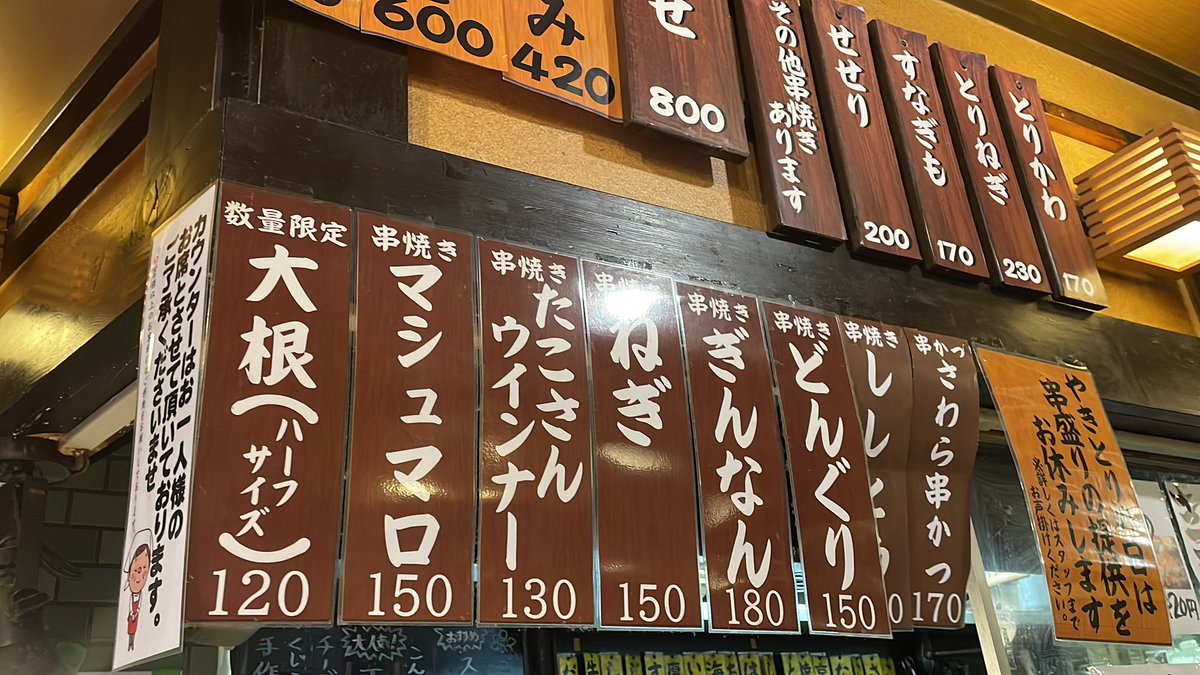 600
み
420
せ
800
その他串焼き
あります
せせり
200
すなぎも
170
とりねぎ
230
とりかわ
170
カウンターはお一人様の
お席とさせて頂いております。
ご了承くださいませ
数量限定
大根(ハーフサイズ)
120
串焼き
マシュマロ
150
串焼き
たこさん
ウインナー
130
串焼き
ねぎ
150
串焼き
ぎんなん
180
串焼き
どんぐり
150
串焼き
しし
0
串かつ
さわら串かつ
170
やきとり
は
串盛りの提供を
お休みします
※詳しくはスタッフまで
お声掛けください。
大人気!
おすすめ